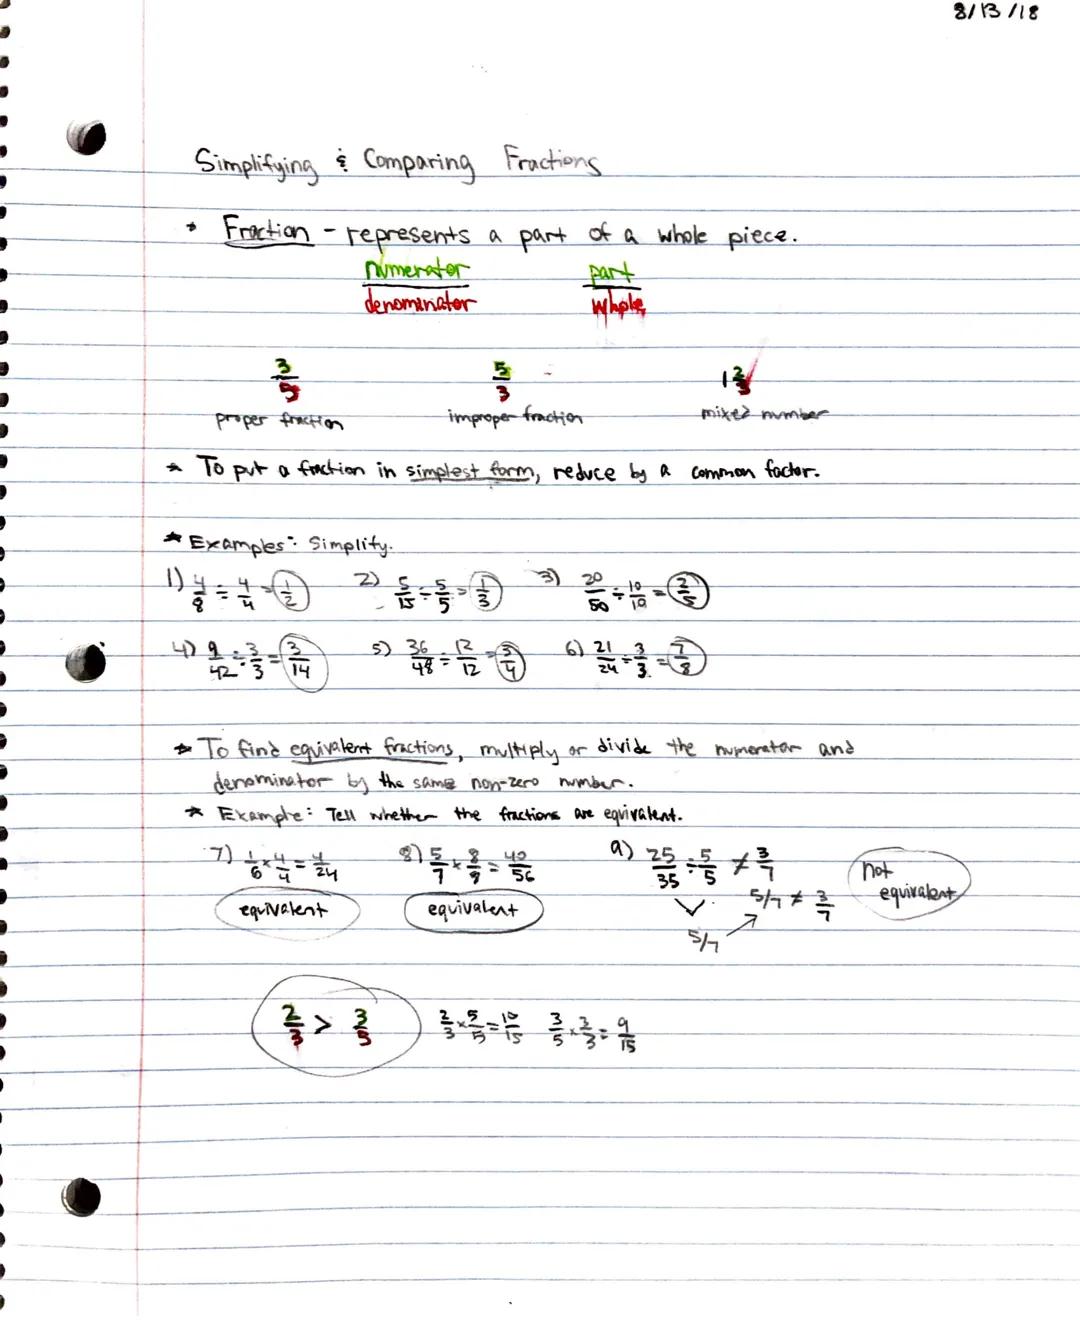 8/13/18
Simplifying & Comparing Fractions
* Fraction - represents a part of a whole piece.
numerator/denominator part/whole
3/5 5/3 = 1 2/3
proper fraction improper fraction mixed number
* To put a fraction in simplest form, reduce by a common factor.
* Examples: Simplify.
1) 4/8 ÷ 4/4 = 1/2 2) 5/15 ÷ 5/5 = 1/3 3) 20/50 ÷ 10/10 = 2/5
4) 9/42 ÷ 3/3 = 3/14 5) 36/48 ÷ 12/12 = 3/4 6) 21/24 ÷ 3/3 = 7/8
* To find equivalent fractions, multiply or divide the numerator and
denominator by the same non-zero number.
* Example: Tell whether the fractions are equivalent.
7) 1/6 × 4/4 = 4/24 8) 5/7 × 8/8 = 40/56 9) 25/35 ÷ 5/5 ≠ 3/7 not
equivalent equivalent 5/7 ≠ 3/7 equivalent
5/7
2/3 > 3/5 2/3 × 5/5 = 10/15 3/5 × 3/3 = 9/15